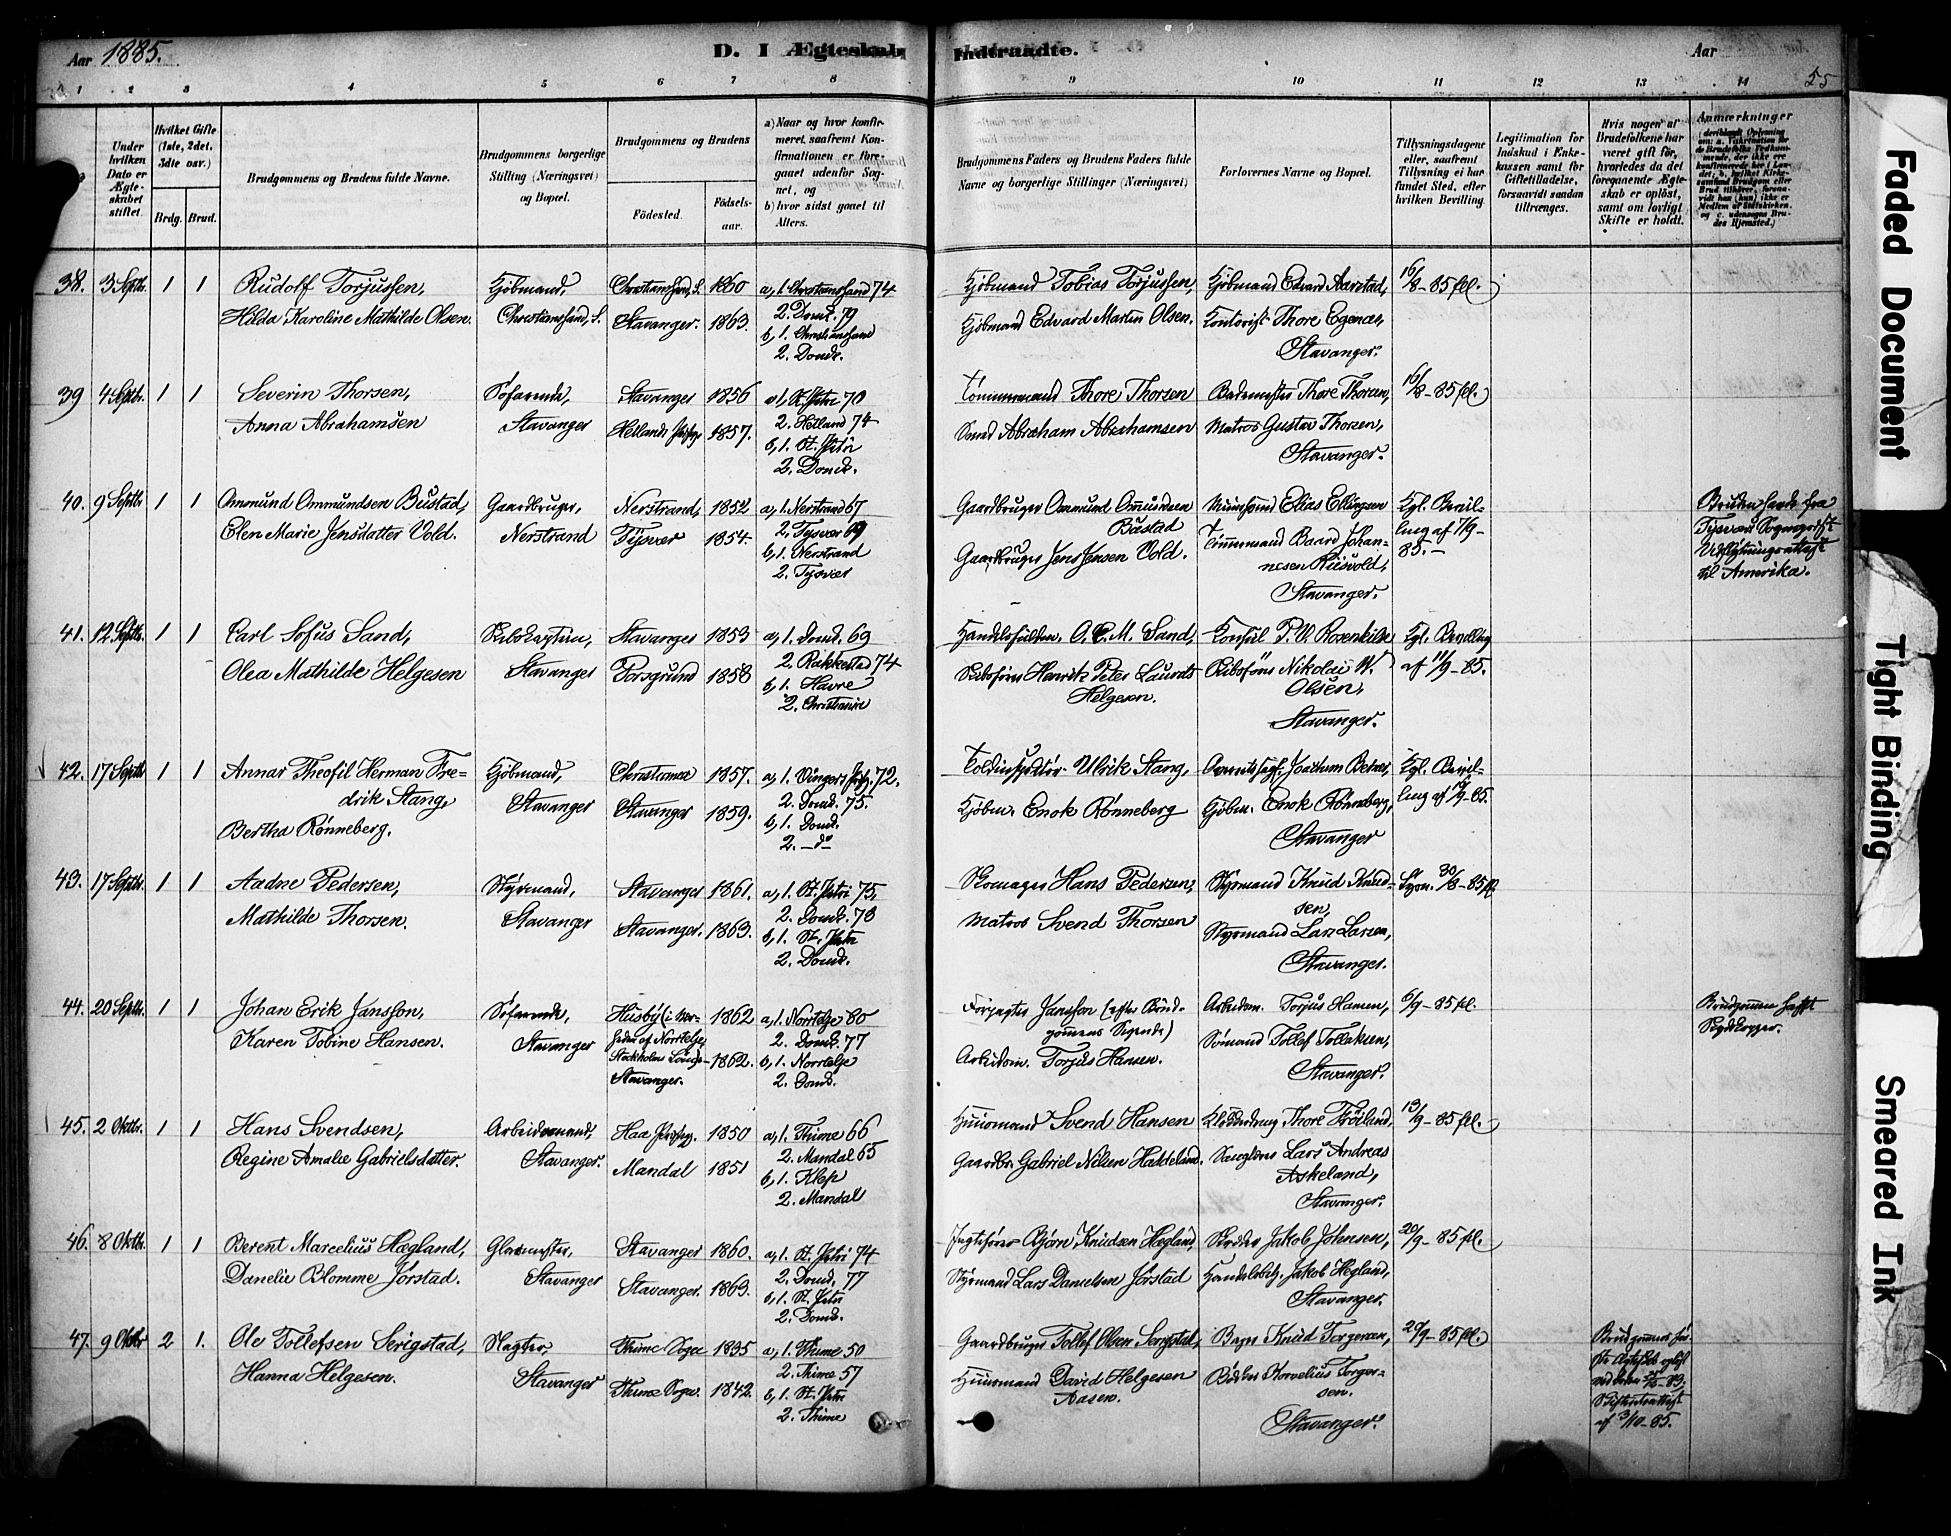 Aar 1885.
D. I Ægteskab
Indtraadte.
Aar
55
1 2 3 4 5 6 7 8
9 10 11 12 13 14
Under hvilken Dato er Ægteskabet stiftet.
Hvilket Gifte (1ste, 2det, 3die osv.)
Brdg. Brud.
Brudgommens og Brudens fulde Navne.
Brudgommens borgerlige Stilling (Næringsvei) og Bopæl.
Brudgommens og Brudens
Födested.
Födselsaar.
a) Naar og hvor konfirmeret, saafremt Konfirmationen er foregaaet udenfor Sognet, og
b) hvor sidst gaaet til Alters.
Brudgommens Faders og Brudens Faders fulde Navne og borgerlige Stillinger (Næringsvei)
Forlovernes Navne og Bopæl.
Tillysningsdagene eller, saafremt Tillysning ei har fundet Sted, efter hvilken Bevilling.
Legitimation for Indskud i Enkekassen samt for Giftetilladelse, forsaavidt saadan tiltrænges.
Hvis nogen af Brudefolkene har været gift för, hvorledes da det foregaaende Ægteskab er oplöst, samt om lovligt Skifte er holdt.
Anmærkninger
38. 3 Septbr. 1 1
Rudolf Torjussen,
Hilda Karoline Mathilde Olsen.
Kjöbmand,
Christianssand, S.
Christianssand, S. 1860
Stavanger. 1863.
a, 1. Christianssand 74
2. Domk. 79
b, 1. Christianssand
2. Domk.
Kjöbmand Tobias Torjussen,
Kjöbmand Edvard Martin Olsen.
Kjöbmand Edvard Aarstad,
Kontorist Thore Egenæs,
Stavanger.
16/8-85 fl.
39 4 Septb. 1 1
Severin Thorsen,
Anna Abrahamsen
Söfarende,
Stavanger
Stavanger 1856
Hellands Præstgj. 1857.
a, 1. St. Petri 70
2. Helland 74
b, 1. St. Petri
2. Domk.
Tömmermand Thore Thorsen
Smed Abraham Abrahamsen
Bademester Thore Thorsen,
Matros Gustav Thorsen,
Stavanger.
16/8-85 fl.
40. 9 Septbr. 1 1
Ommund Ommundsen Bustad,
Elen Marie Jensdatter Vold.
Gaardbruger,
Nerstrand
Nerstrand, 1852
Tysvær 1854.
a, 1. Nerstrand 67
2. Tysvær 69
b, 1. Nerstrand
2. Tysvær
Gaardbruger Ommund Ommundsen
Bustad
Gaardbruger Jens Jensen Vold.
Elias Ellingsen
Tömmermand Baard Johan-
nesen
Stavanger.
Kgl. Bevil-
ling af 7/9-
85.-
til Amerika.
41. 12 Septbr. 1 1
Carl Sofus Sand,
Olea Mathilde Helgesen
Skibskaptein,
Stavanger
Stavanger 1853
Porsgrund 1858
a, 1. Domk. 69
2. Rakkestad 74
b, 1. Havre
2. Christiania
O. C. M. Sand,
Skibsförer Henrik Peter Laurits
Helgesen.
Konsul P. V. Rosenkilde
Skibsförer Nikolai W.
Olsen,
Stavanger.
Kgl. Bevilling
af 11/9-85.
42. 17 Septbr 1 1
Annar Theofil Herman Fre-
drik Stang,
Bertha Rönneberg.
Kjöbmand,
Stavanger
Christiania 1857.
Stavanger 1859.
a, 1. Vinger Pstgj. 72.
2. Domk. 75.
b, 1. Domk.
2. - do
Toldinspektör Ulrik Stang,
Kjöbm. Enok Rönneberg
Joachim
Kjöbm. Enok Rönneberg,
Stavanger
Kgl. Bevil-
ling af /9-85.
43. 17 Septbr. 1 1
Aadne Pedersen,
Mathilde Thorsen.
Styrmand,
Stavanger
Stavanger 1861.
Stavanger. 1863.
a, 1. St. Petri 75.
2. Domk. 78
b, 1. St. Petri
2. Domk.
Skomager Hans Pedersen,
Matros Svend Thorsen
Styrmand Knud Knud-
sen,
Styrmand Lars Larsen,
Stavanger.
30/8-85 fl
44. 20 Septbr. 1 1
Johan Erik Jansson,
Karen Tobine Hansen.
Söfarende,
Stavanger
Husby i Nær-
heden af Norrtelje,
Stockholms 1862
Stavanger. 1862.
a, 1. Norrtelje 80
2. Domk. 77
b, 1. Norrtelje
2. Domk.
Forpagter Jansson (efter Brud-
gommens Sigende)
Arbeidsm. Torjus Hansen.
Arbeidsm. Torjus Hansen,
Sömand Tollef Tollaksen,
Stavanger.
6/9-85 fl.
Brudgommen
45. 2 Oktbr. 1 1
Hans Svendsen,
Regine Amalie Gabrielsdatter.
Arbeidsmand,
Stavanger.
Haa Præstgj. 1850
Mandal 1851
a, 1. Thime 66
2. Mandal 65
b, 1. Klep
2. Mandal
Huusmand Svend Hansen
Gaardbr. Gabriel Nilsen Haddeland.
Thore Tröiland,
Lars Andreas
Askeland,
Stavanger.
13/9-85 fl.
46. 8 Oktbr. 1 1
Berent Marcelius Hægland,
Danelie Blomme Jörstad.
Glarmester,
Stavanger
Stavanger 1860.
Stavanger. 1863.
a, 1. St. Petri 74
2. Domk. 77
b, 1. St. Petri
2. Domk.
Jagtförer Björn Knudsen Hægland,
Styrmand Lars Danielsen Jörstad
Jakob Johnsen,
Jakob Hegland,
Stavanger.
20/9-85 fl.
47. 9 Oktbr 2 1.
Ole Tollefsen Serigstad,
Hanna Helgesen.
Slagter,
Stavanger
Thime Sogn 1835
Thime Sogn. 1842.
a, 1. Thime 50
2. Thime 57
b, 1. St. Petri
2. Thime
Gaardbruger Tollef Olsen Serigstad,
Huusmand David Helgesen
Aasen.
Bager Knud Torgersen,
Bödker Kornelius Torger-
sen.
Stavanger.
20/9-85 fl.
Brudgommens för-
ste Ægteskab oplöst
Skifteretsattest
af 3/10-85.
Faded Document
Tight Binding
Smeared Ink